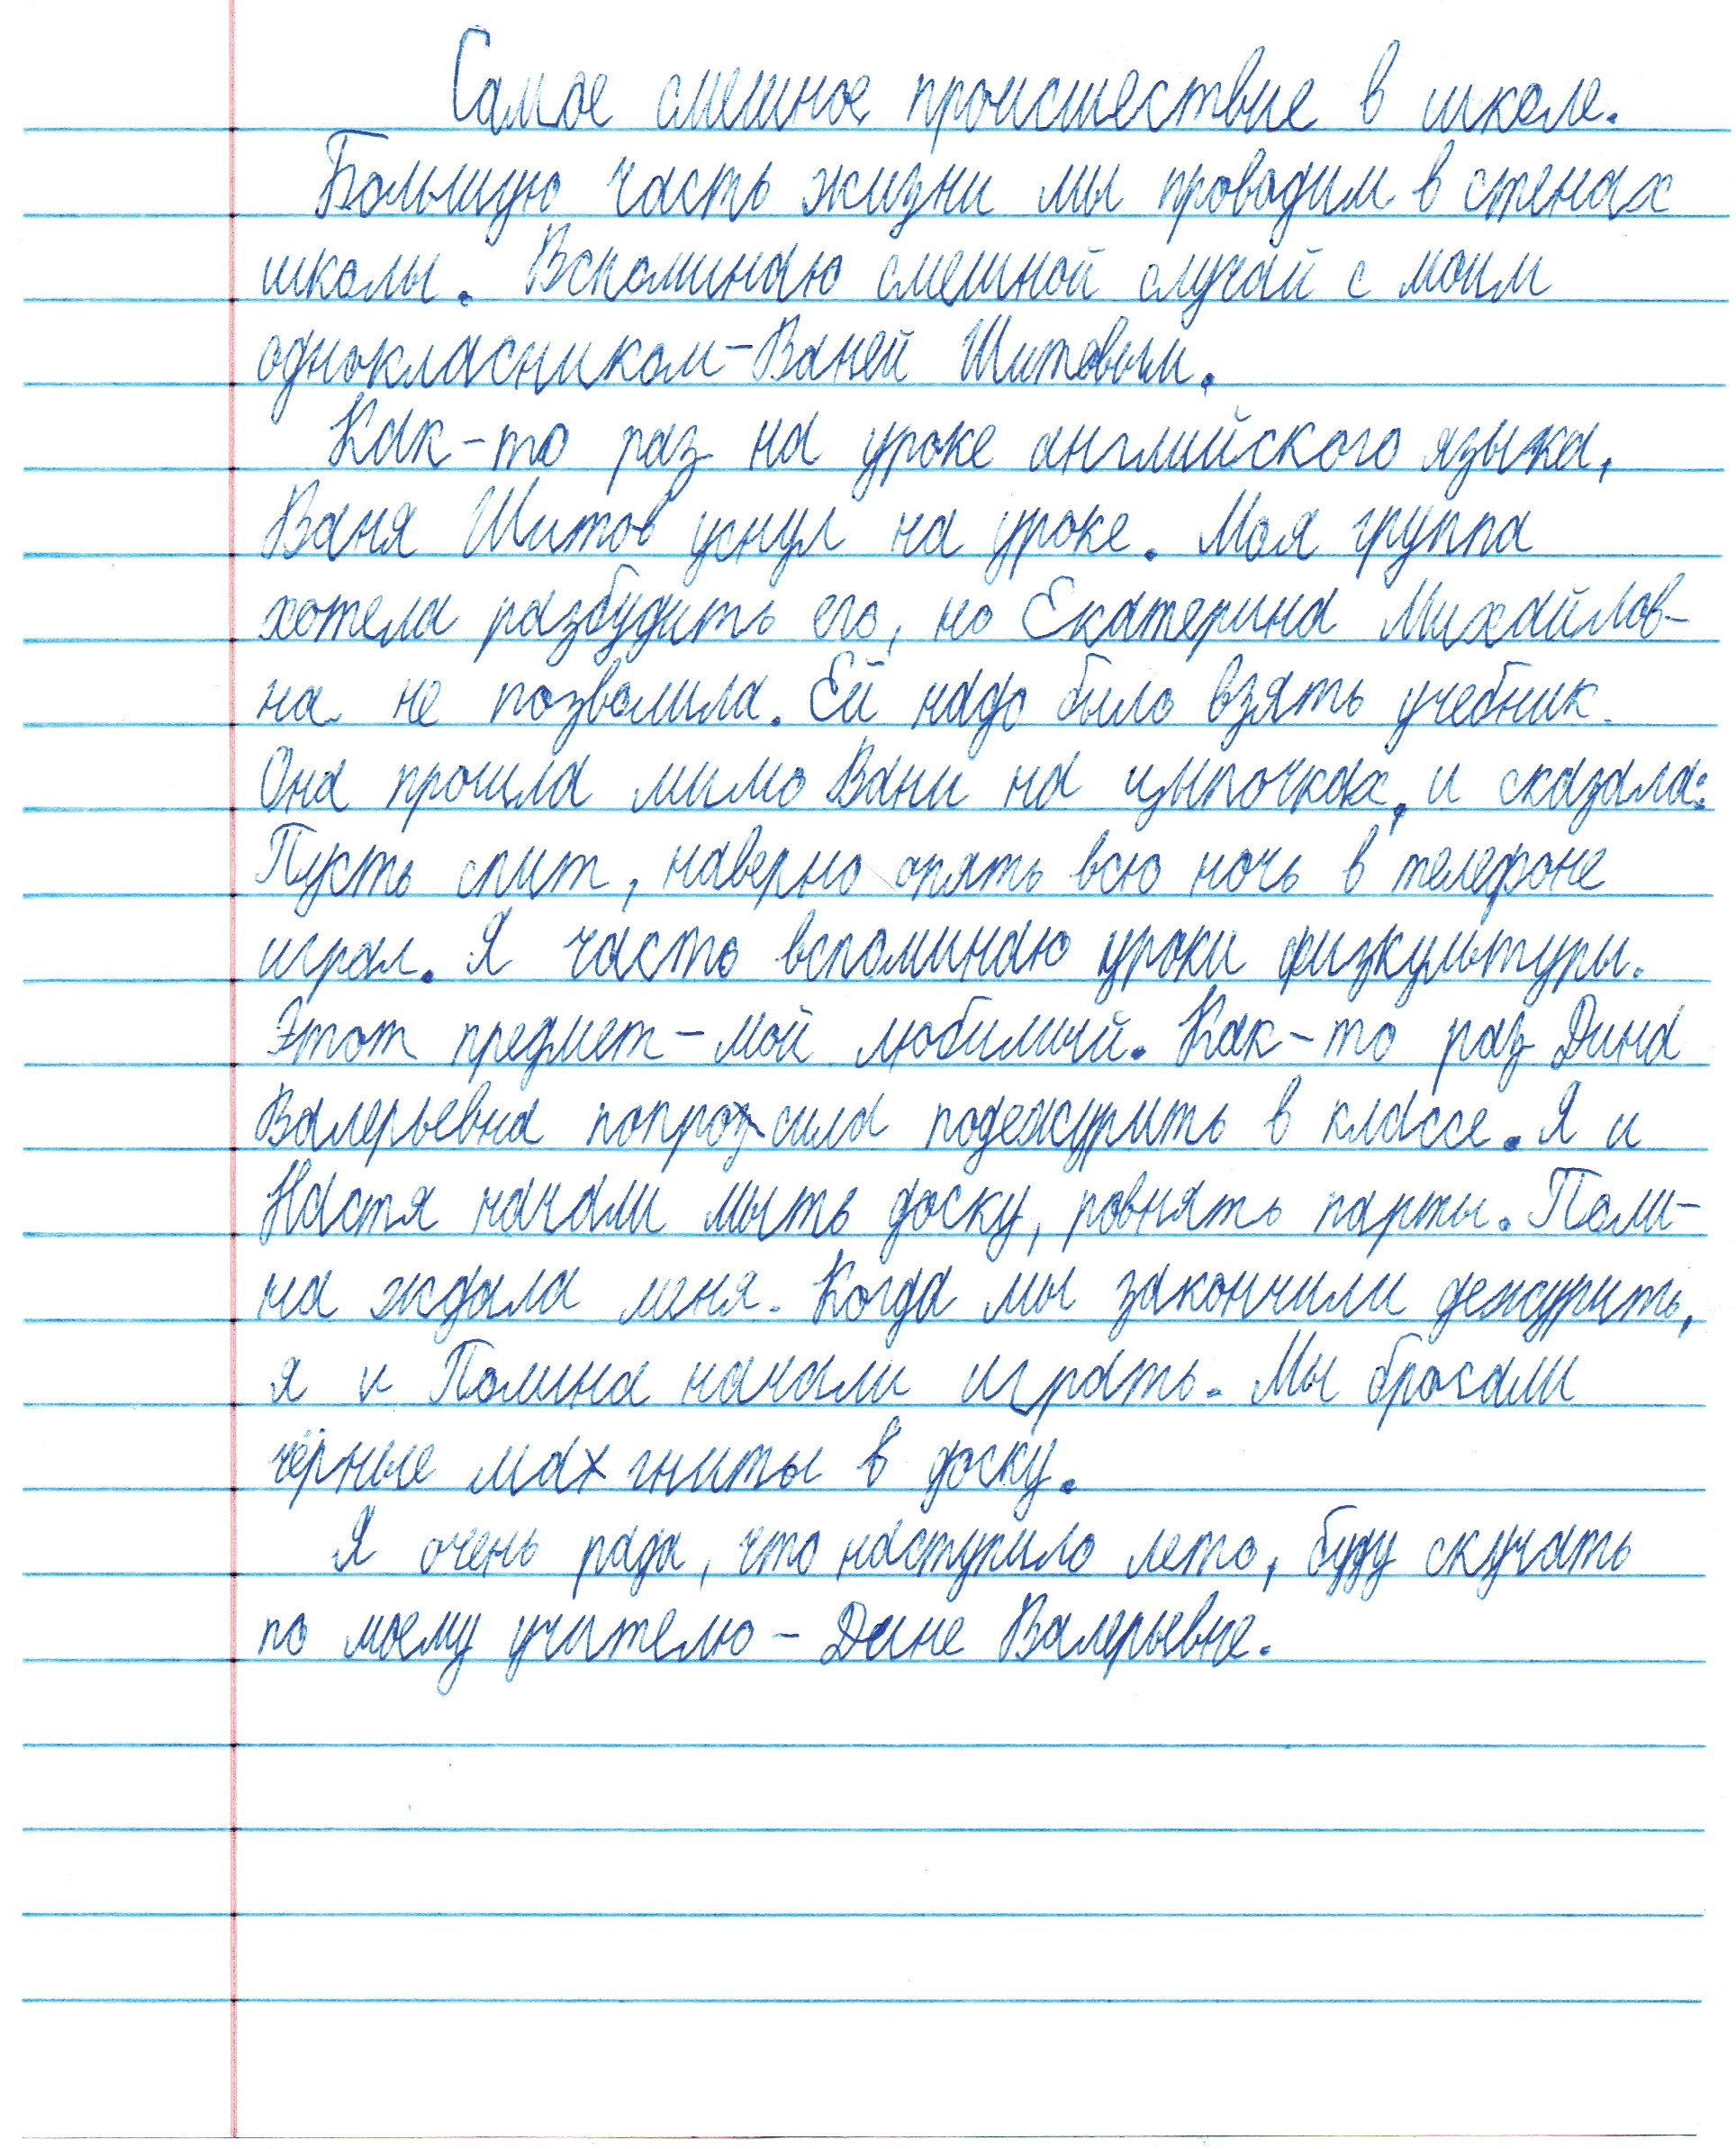 Самое смешное происшествие в школе.
Большую часть жизни мы проводим в стенах
школы. Вспоминаю смешной случай с моим
однокласником-Ваней Шитовым.
Как-то раз на уроке английского языка,
Ваня Шитов уснул на уроке. Моя группа
хотела разбудить его, но Екатерина Михайлов-
на не позволила. Ей надо было взять учебник.
Она прошла мимо Вани на цыпочках, и сказала:
Пусть спит, наверно опять всю ночь в телефоне
играл. Я часто вспоминаю уроки физкультуры.
Этот предмет-мой любимый. Как-то раз Дина
Валерьевна попросила подежурить в классе. Я и
Настя начали мыть доску, ровнять парты. Поли-
на ждала меня. Когда мы закончили дежурить,
я и Полина начали играть. Мы бросали
чёрные магниты в доску.
Я очень рада, что наступило лето, буду скучать
по моему учителю - Дине Валерьевне.